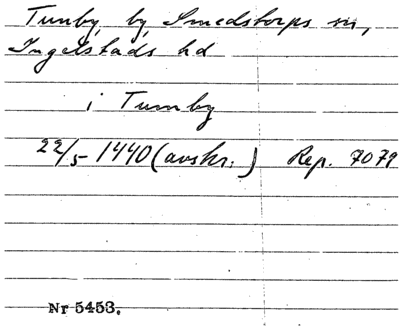 Tunby, by, Smedstorps sn,
Ingelstads hd
i Tumby
22/5 1440 (avskr.) Rep. 7079
Nr 5453.